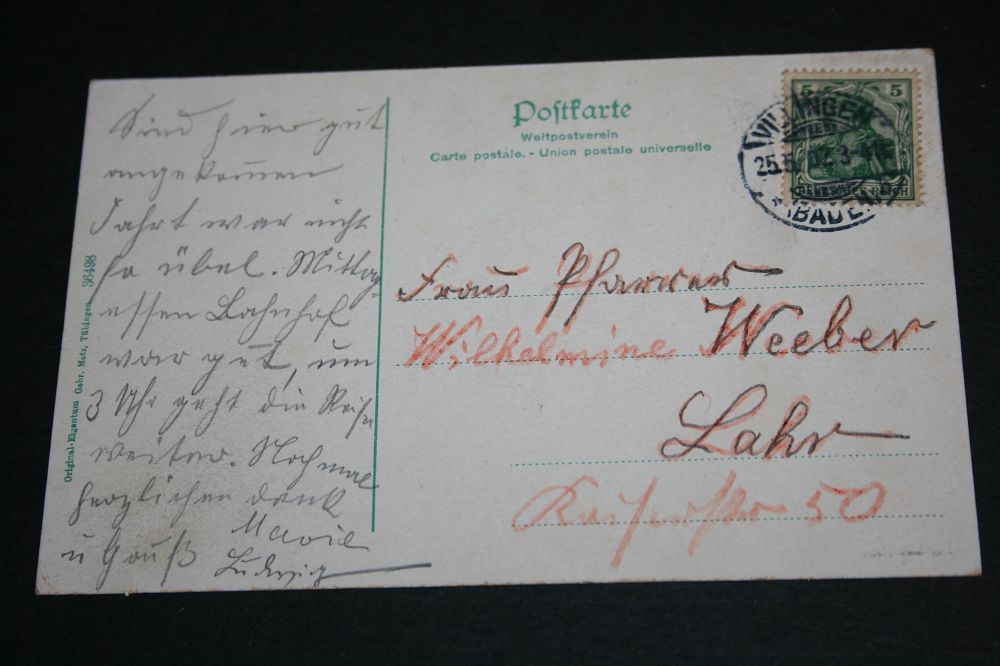 Sind hier gut
angekommen
Fahrt war nicht
so übel. Mittag-
essen Bahnhof
war gut, um
3 Uhr geht die Reise
weiter. Nochmal
herzlichen Dank
u Gruß Marie
Ludwig
Original-Eigentum Gebr. Metz, Tübingen 36498
Postkarte
Weltpostverein
Carte postale. - Union postale universelle
5 5
DEUTSCHES REICH
VILLINGEN
25.5.
(BADEN)
Frau Pfarrer
Wilhelmine Weeber
Lahr
Kaiserstr 50